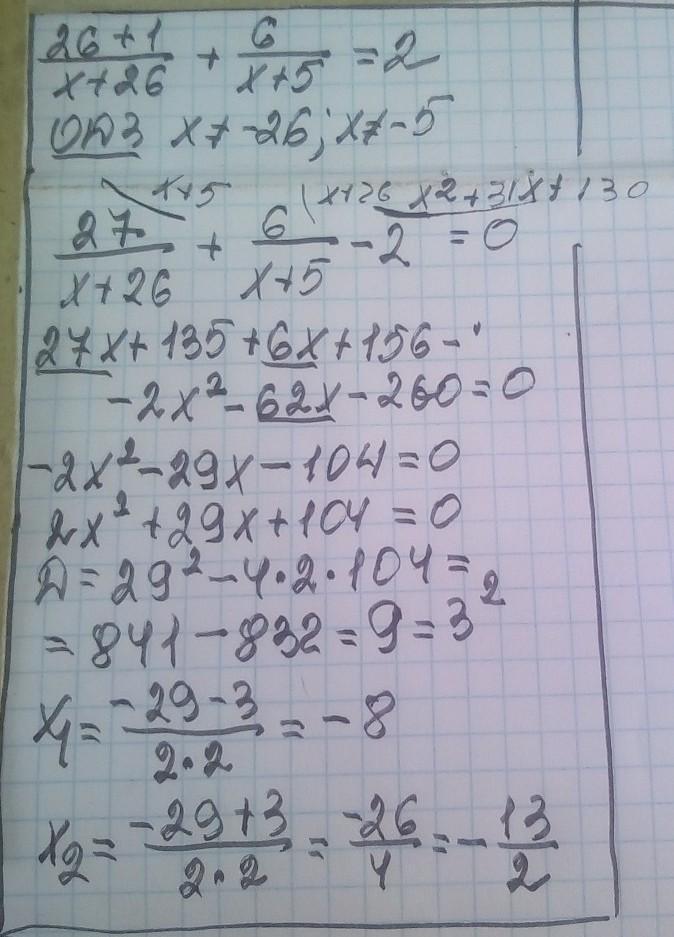 (26+1)/(x+26) + 6/(x+5) = 2
ОДЗ x≠-26; x≠-5
x+5 x+26 x²+31x+130
27/(x+26) + 6/(x+5) - 2 = 0
27x+135+6x+156-
-2x²-62x-260=0
-2x²-29x-104=0
2x²+29x+104=0
Д=29²-4·2·104=
=841-832=9=3²
x₁=(-29-3)/(2·2)=-8
x₂=(-29+3)/(2·2)=-26/4=-13/2